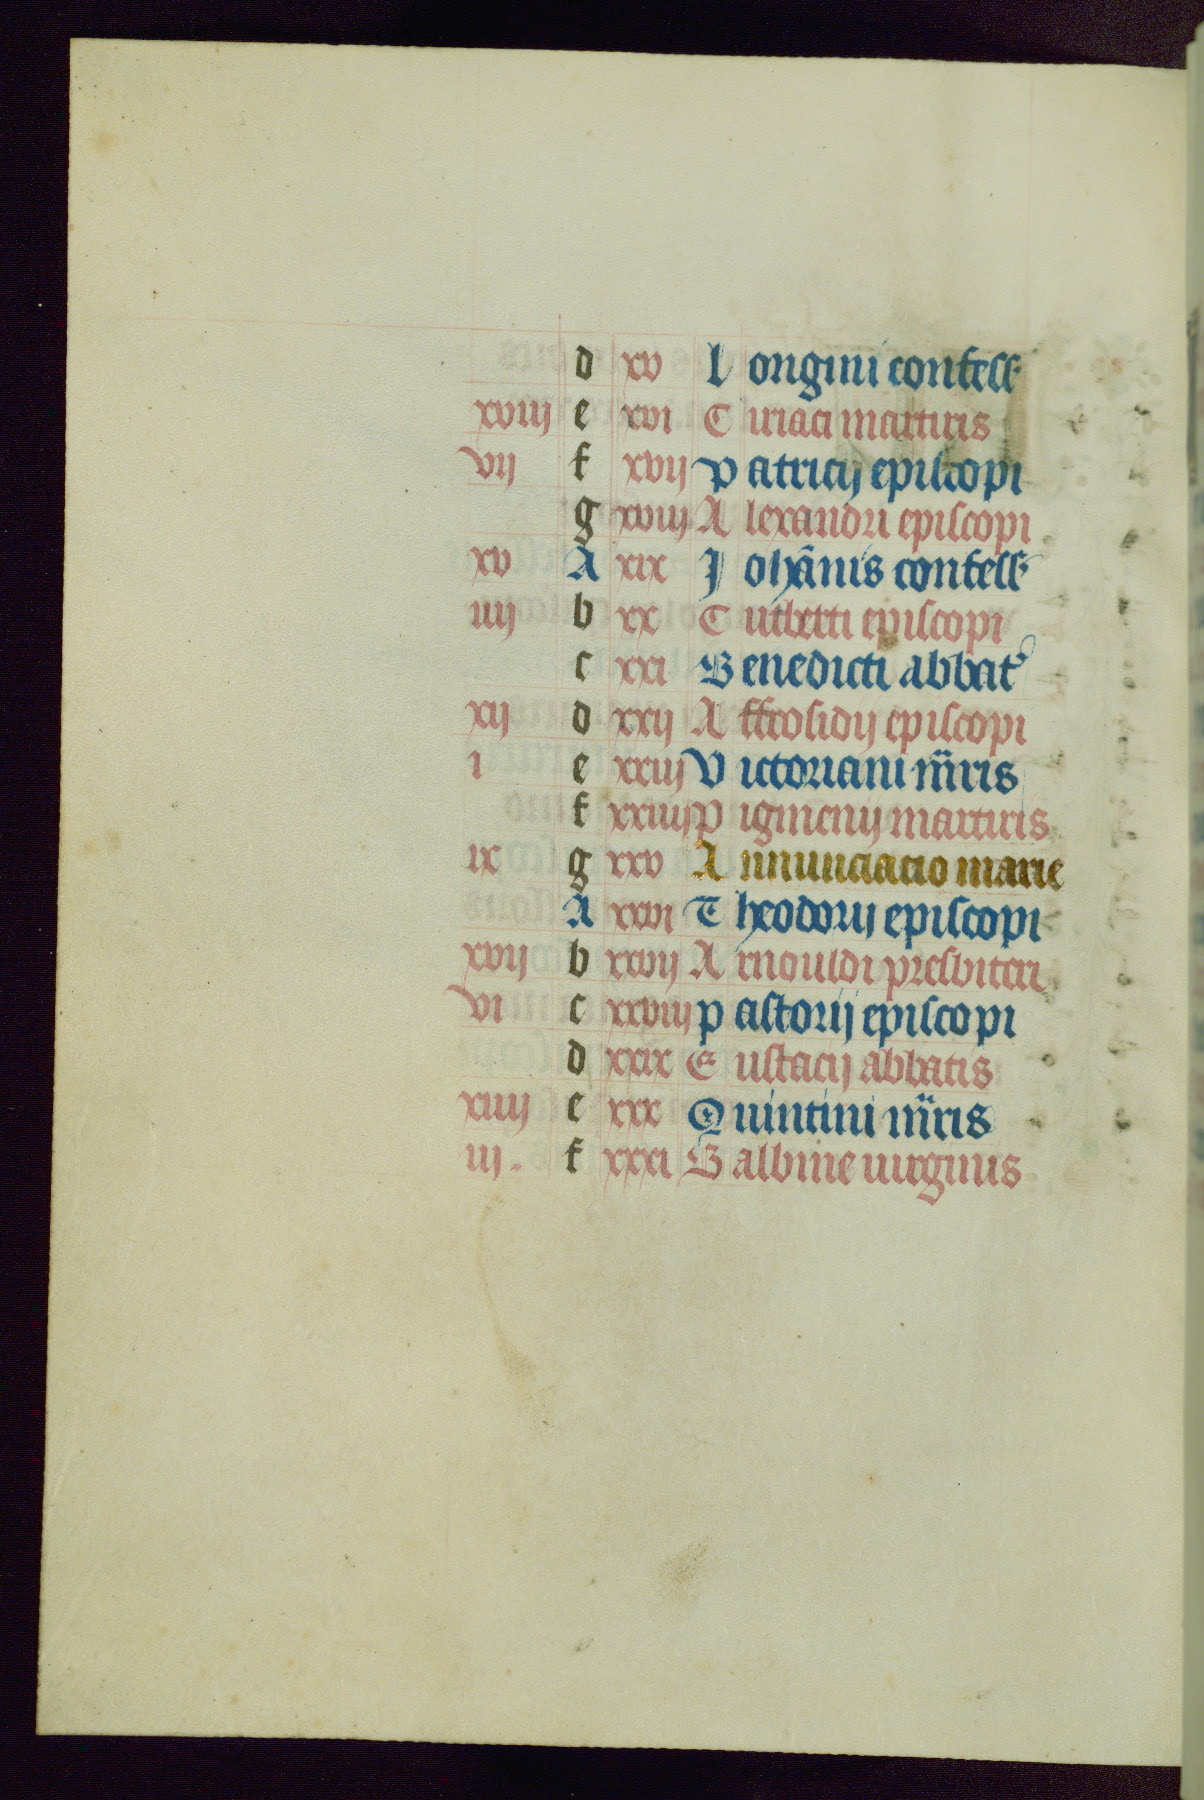 d xv Longini confess
xviij e xvi Ciriaci martiris
vij f xvij Patricij episcopi
g xviij Alexandri episcopi
xv A xix Johānis confess
iiij b xx Cutberti episcopi
c xxi Benedicti abbat
xij d xxij Affrosidij episcopi
i e xxiij Victoriani mris
f xxiiij Pigmenij martiris
ix g xxv Annunciacio marie
A xxvi Theodorij episcopi
xvij b xxvij Arnouldi presbiteri
vi c xxviij Pastorij episcopi
d xxix Eustacij abbatis
xiiij e xxx Quintini mris
iij. f xxxi Balbine uirginis